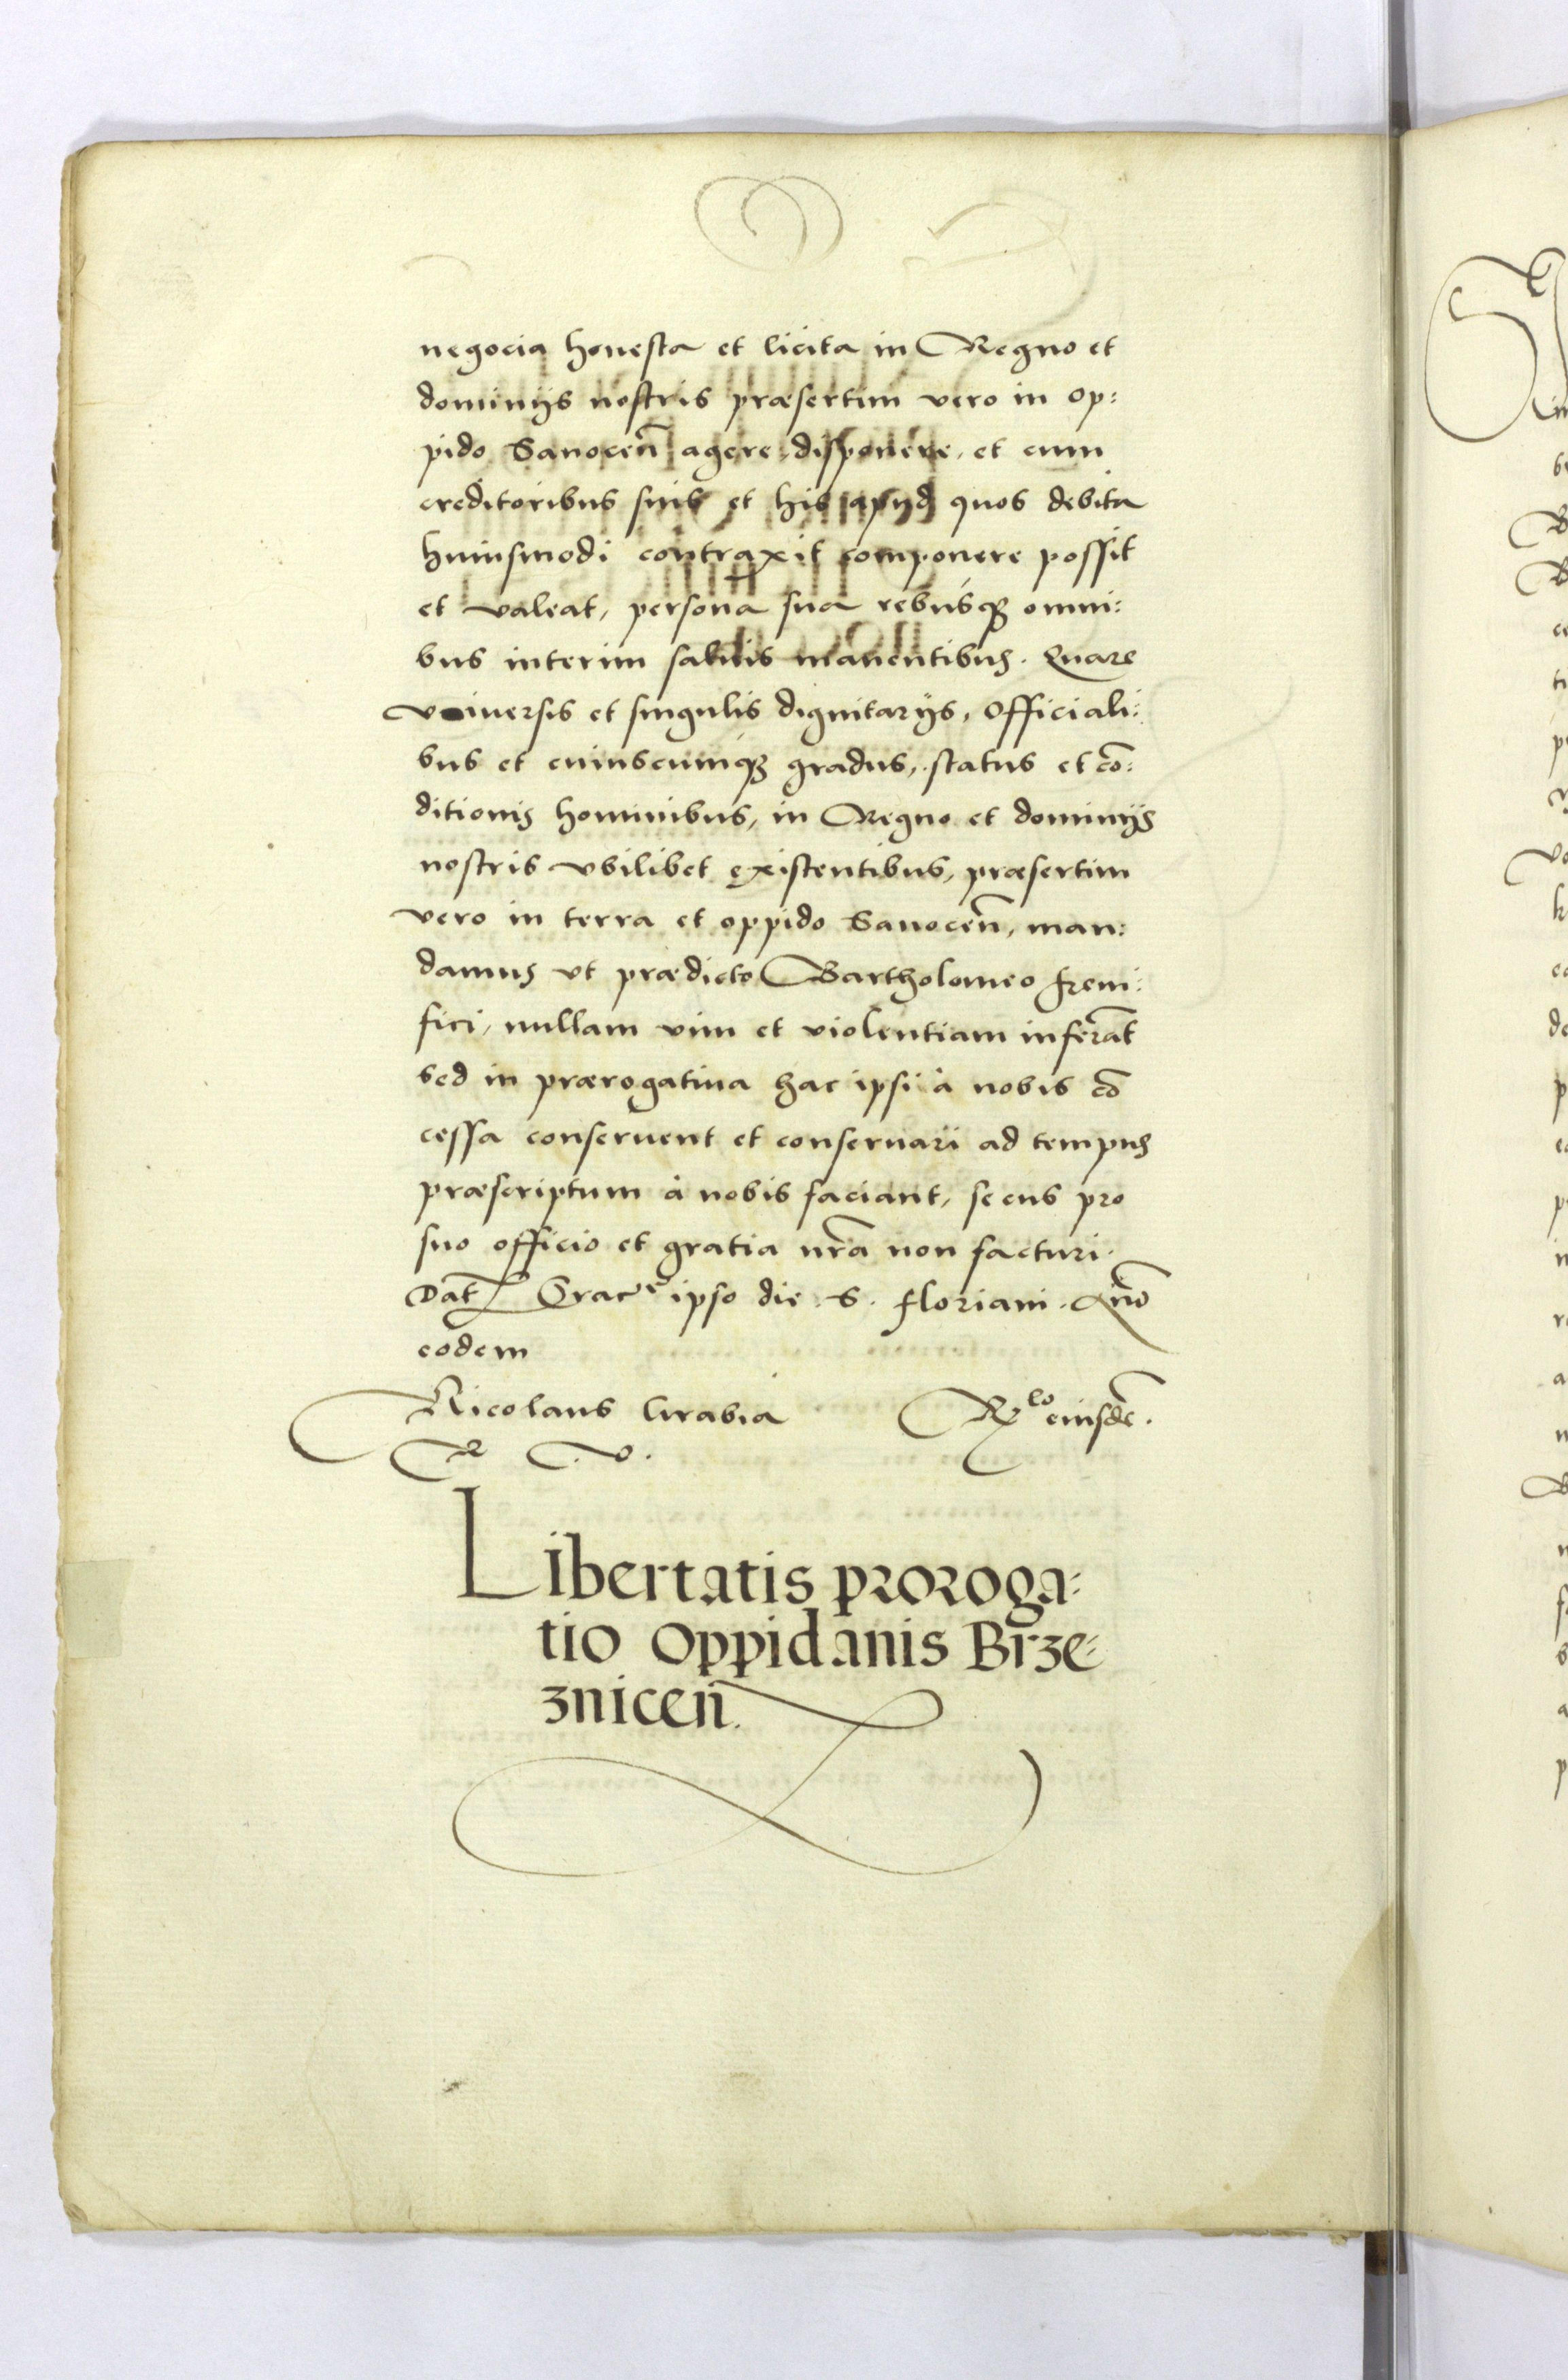 negocia honesta et licita in Regno et
dominijs nostris præsertim vero in op:
pido Sanoceñ agere, disponere, et cum
creditoribus suis et his apud quos debita
huiusmodi contraxit componere possit
et valeat, persona sua rebusqꝫ omni:
bus interim saluis manentibus. Quare
vniuersis et singulis dignitarijs, Officiali:
bus et cuiuscumqꝫ gradus, status et cõ:
ditionis hominibus, in Regno et dominijs
nostris vbilibet existentibus, præsertim
vero in terra et oppido Sanoceñ, man:
damus vt prædicto Bartholomeo freni:
fici, nullam vim et violentiam inferãt
sed in prærogatiua hac ipsi à nobis cõ
cessa conseruent et conseruari ad tempus
præscriptum à nobis faciant, secus pro
suo officio et gratia nr̃a non facturi.
Dat̃ Cracᵉ ipso die S. floriani. Ann̄o
eodem
Nicolaus Grabia R.ˡᵒ eiusdẽ.
R. V.
Libertatis proroga:
tio Oppidanis Brze:
zniceñ.